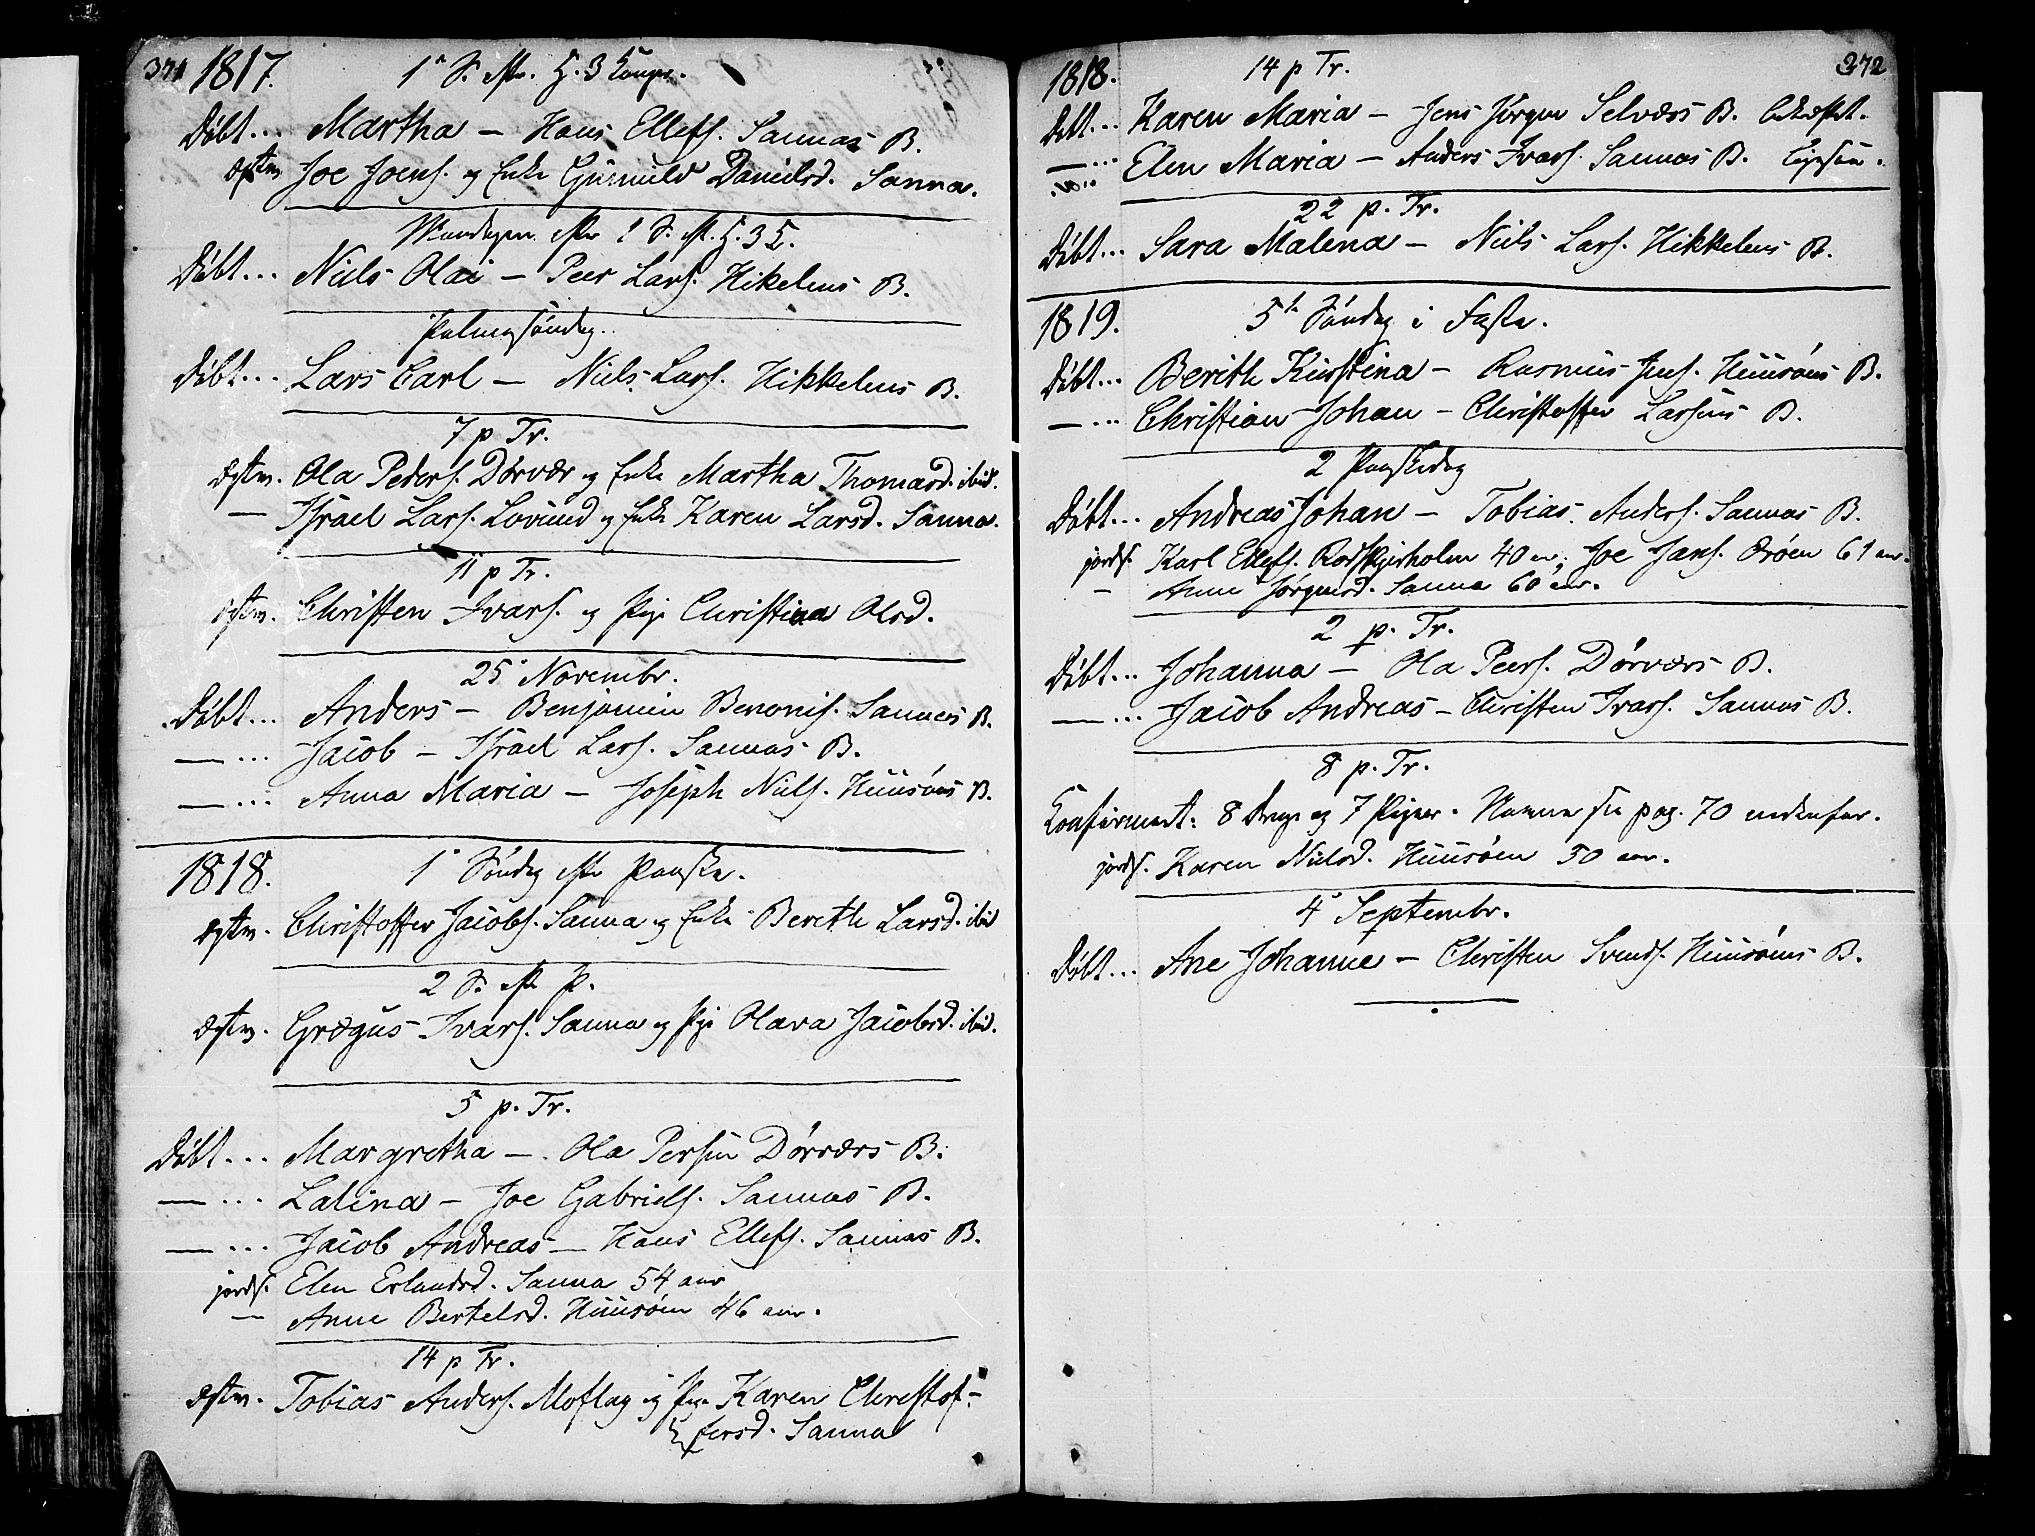 371 1817. 1ste S. eftr. H. 3 Konger.
Döbt... Martha — Hans Ellefs. Sannas B.
Ægtev. Joe Joens. og Enke Gurnild Danielsd. Sanna.
Mandagen eftr 1 S. eft. H. 3 K.
Döbt... Niels Olai — Peer Lars. Hikelens B.
Palmesöndag.
Döbt... Lars Carl — Niels Lars. Hikkelens B.
7 p Tr.
Ægtev. Ola Peders. Dörvær og Enke Martha Thomasd. ibid.
— Israel Lars. Lovund og Enke Karen Larsd. Sanna.
11 p Tr.
Ægtev. Christen Ivars. og Pige Christina Olsd.
25 Novembr.
Döbt... Anders — Benjamin Benonis. Sannas B.
— ... Jacob — Israel Lars. Sannas B.
— ... Anna Maria — Joseph Niels. Huusöens B.
1818. 1ste Söndag eftr Paaske.
Ægtev. Christoffer Jacobs. Sanna og Enke Bereth Larsd. ibid
2 S. eft P.
Ægtev. Grægus Ivars. Sanna og Pige Olava Jacobsd. ibid.
5 p. Tr.
Döbt... Margretha — Ola Persen Dörværs B.
— ... Lalina — Joe Gabriels. Sannas B.
— ... Jacob Andreas — Hans Ellefs. Sannas B.
jords. Elen Erlandsd. Sanna 54 aar
— Anne Bertelsd. Huusöen 46 aar.
14 p Tr.
Ægtev. Tobias Anders. Moflag og Pige Karen Christof-
fersd. Sanna
372
1818. 14 p Tr.
Döbt... Karen Maria — Jens Jörgen Selværs B.
— ... Elen Maria — Anders Ivars. Sannas B.
22 p. Tr.
Döbt... Sara Malena — Niels Lars. Hikkelens B.
1819. 5te Söndag i Faste.
Döbt... Berith Kirstina — Rasmus Jens. Huusöens B.
— ... Christian Johan — Christoffer Larsens B.
2 Paaskedag
Döbt... Andreas Johan — Tobias Anders. Sannas B.
jords. Karl Ellefs. Rødskjerholm 40 aar; Joe Jans. Ørøen 61 aar.
— Anne Jörgensd. Sanna 60 aar.
2 p. Tr.
Döbt... Johanna — Ola Peers. Dörværs B.
— ... Jacob Andreas — Christen Ivars. Sannas B.
8 p. Tr.
Konfirmert: 8 Drenge og 7 Piger. Navne see pag. 70 nedenfor.
jords. Karen Nielsd. Huusöen 50 aar.
4 Septembr.
Döbt... Ane Johanne — Christen Svends. Huusöens B.